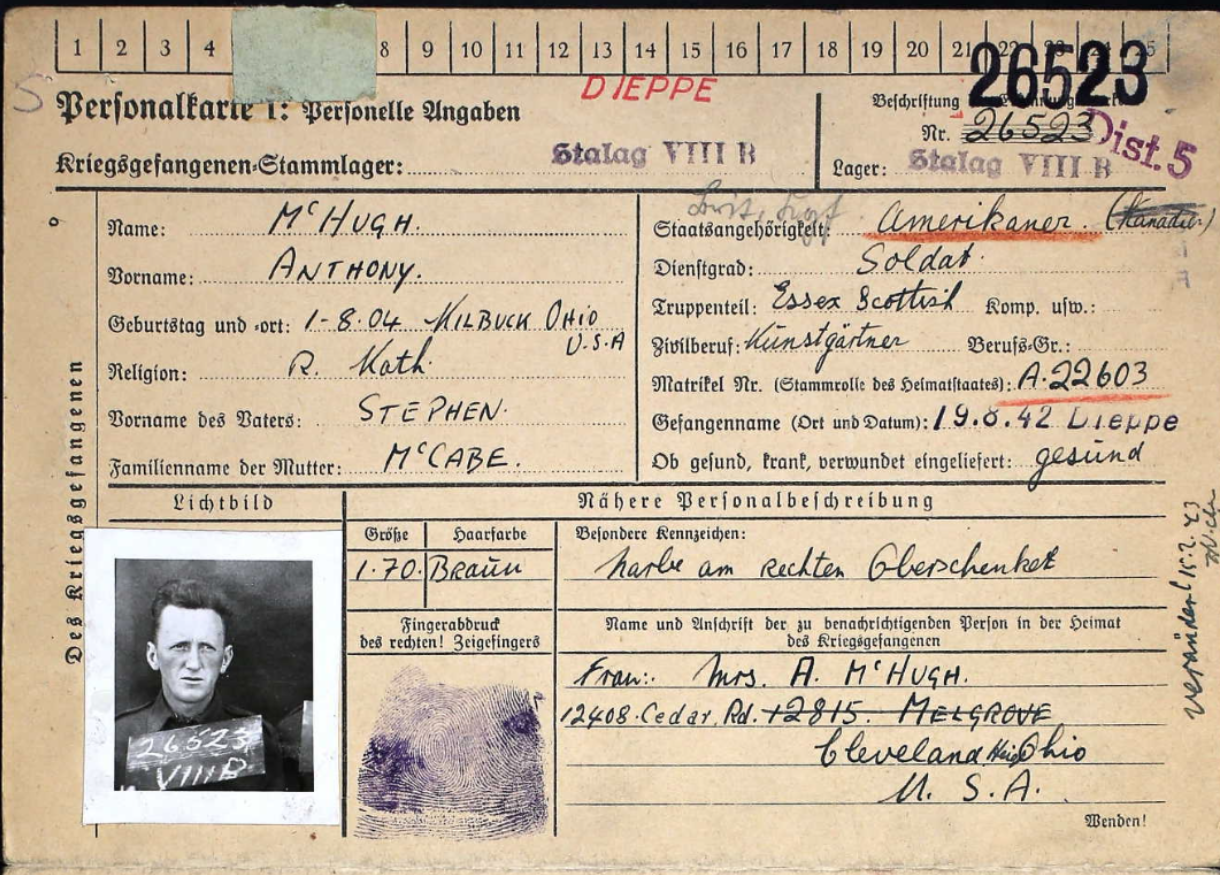 1 2 3 4 8 9 10 11 12 13 14 15 16 17 18 19 20 21 22 23 24 25
26523
DIEPPE
Personalkarte I: Personelle Angaben
Beschriftung der Erkennungsmarke
Nr. 26523
Dist. 5
Kriegsgefangenen-Stammlager: Stalag VIII B
Lager: Stalag VIII B
Des Kriegsgefangenen
Name: McHUGH.
Vorname: ANTHONY.
Geburtstag und -ort: 1-8-04 KILBUCK OHIO
U.S.A
Religion: R. Kath.
Vorname des Vaters: STEPHEN.
Familienname der Mutter: McCABE.
Staatsangehörigkeit: Amerikaner. (Kanadier)
Dienstgrad: Soldat.
Truppenteil: Essex Scottish Komp. usw.:
Zivilberuf: Kunstgärtner Berufs-Gr.:
Matrikel Nr. (Stammrolle des Heimatstaates): A.22603
Gefangenname (Ort und Datum): 19.8.42 Dieppe
Ob gesund, krank, verwundet eingeliefert: gesund
Lichtbild
26523
VIIIB
Nähere Personalbeschreibung
Größe Haarfarbe
1.70. Braun
Besondere Kennzeichen:
Narbe am rechten Oberschenkel
Fingerabdruck
des rechten! Zeigefingers
Name und Anschrift der zu benachrichtigenden Person in der Heimat
des Kriegsgefangenen
Frau: Mrs. A. McHUGH.
12408 Cedar Rd. 12815. MELGROVE
Cleveland Heig Ohio
U. S. A.
Wenden!
verändert 15.2.43